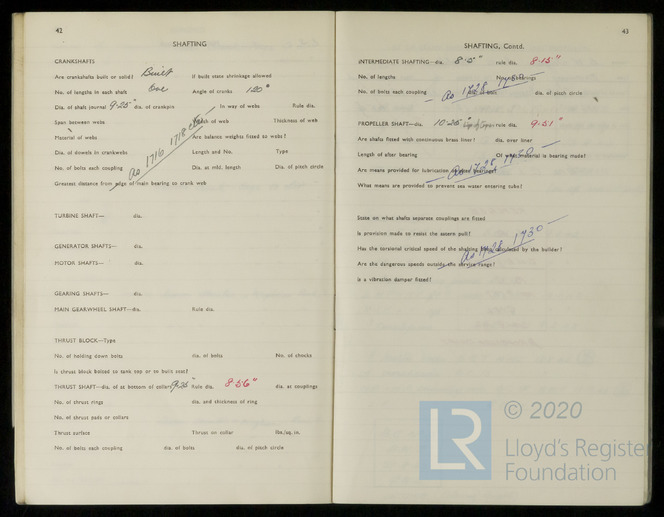 42
SHAFTING
CRANKSHAFTS
Are crankshafts built or solid? Built If built state shrinkage allowed
No. of lengths in each shaft One Angle of cranks 120°
Dia. of shaft journal 9.25" dia. of crankpin In way of webs Rule dia.
Span between webs Breadth of web Thickness of web
Material of webs Are balance weights fitted to webs?
As 1716 1718
Dia. of dowels in crankwebs Length and No. Type
No. of bolts each coupling Dia. at mid. length Dia. of pitch circle
Greatest distance from edge of main bearing to crank web
TURBINE SHAFT— dia.
GENERATOR SHAFTS— dia.
MOTOR SHAFTS— dia.
GEARING SHAFTS— dia.
MAIN GEARWHEEL SHAFT—dia. Rule dia.
THRUST BLOCK—Type
No. of holding down bolts dia. of bolts No. of chocks
Is thrust block bolted to tank top or to built seat?
THRUST SHAFT—dia. of at bottom of collars 9.25" Rule dia. 8.56" dia. at couplings
No. of thrust rings dia. and thickness of ring
No. of thrust pads or collars
Thrust surface Thrust on collar lbs./sq. in.
No. of bolts each coupling dia. of bolts dia. of pitch circle
43
SHAFTING, Contd.
INTERMEDIATE SHAFTING—dia. rule dia. 8.15"
No. of lengths No. of bearings
No. of bolts each coupling dia. of pitch circle
As 1728
PROPELLER SHAFT—dia. 10.25" rule dia. 9.51"
Are shafts fitted with continuous brass liner? dia. over liner
Length of after bearing Of what material is bearing made?
Are means provided for lubrication
As 1728
What means are provided to prevent sea water entering tube?
State on what shafts separate couplings are fitted
Is provision made to resist the astern pull?
Has the torsional critical speed of the shafting been calculated by the builder?
As 1728 1730
Are the dangerous speeds outside the service range?
Is a vibration damper fitted?
LR
© 2020
Lloyd's Register
Foundation